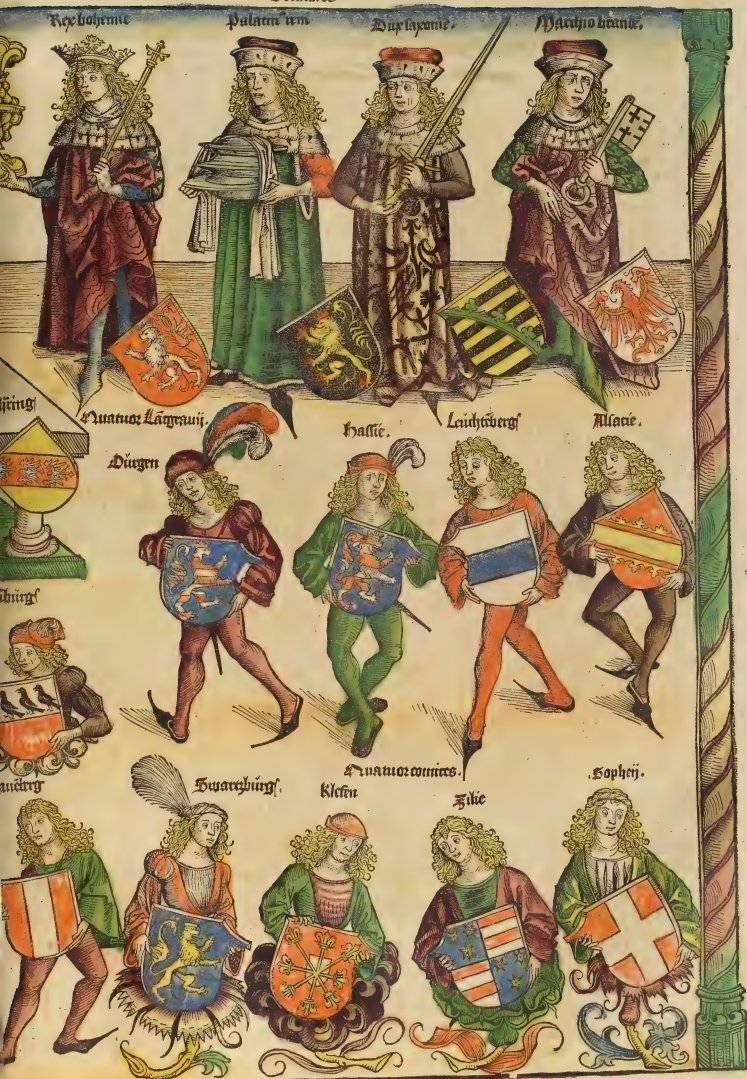 Rex bohemie
Palatin⁹ reni
Dux saxonie.
Marchio brande.
Quatuor Lātgrauij.
Dürgen
Hassie.
Leuchtēbergſ
Alsacie.
Quatuor comites.
Swartzburgſ.
Klefen
Zilie
Sopheij.